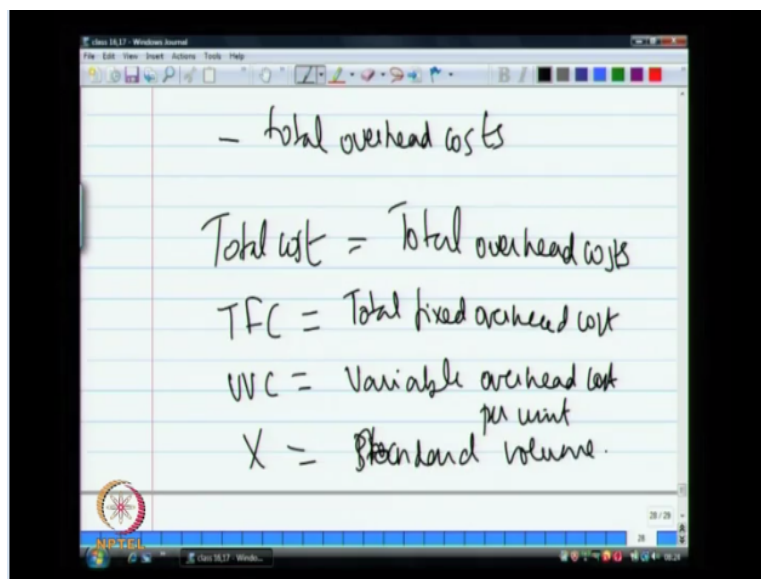 class 16,17 - Windows Journal
File Edit View Insert Actions Tools Help
B I
- total overhead costs
Total cost = Total overhead costs
TFC = Total fixed overhead cost
UVC = Variable overhead cost
per unit
X = Standard volume.
28 / 29
28
NPTEL
class 16,17 - Windo...
08:24